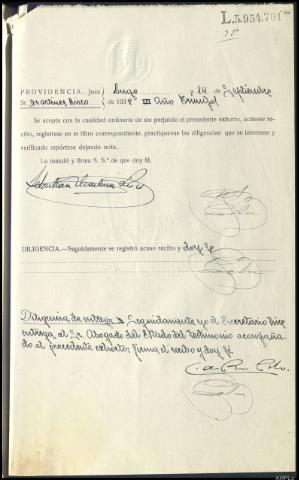 L.5.954.701
PROVIDENCIA. Juez Lugo a 14 de Septiembre
Sr. Martinez de 1938 III Año Triunfal
Se acepta con la cualidad ordinaria de sin perjuicio el precedente exhorto, acúsese re-
cibo, regístrese en el libro correspondiente, practíquense las diligencias que se interesen y
verificado repórtese dejando nota.
Lo mandó y firma S. S.ª de que doy fé.
DILIGENCIA.—Seguidamente se registró acuso recibo y doy fe
Diligencia de entrega Seguidamente yo el Secretario hice
entrega al Sr. Abogado del Estado del testimonio acompaña-
do al precedente exhorto; firma el recibo y doy fe
AHPLu